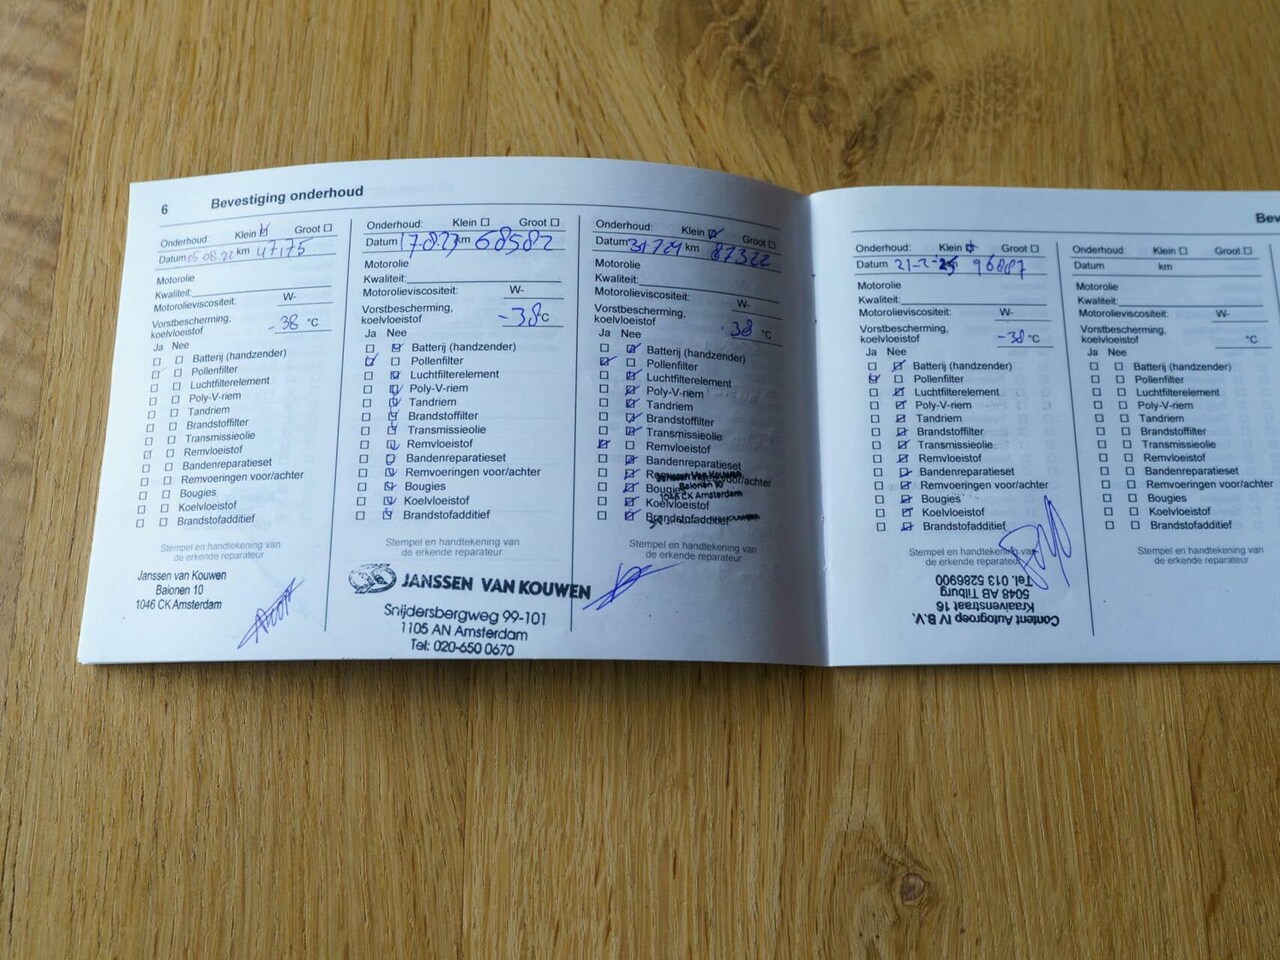 6 Bevestiging onderhoud
Onderhoud: Klein Groot
Datum 05.08.22 km 47175
Motorolie
Kwaliteit:
Motorolieviscositeit: W-
Vorstbescherming,
koelvloeistof -38 °C
Ja Nee
Batterij (handzender)
Pollenfilter
Luchtfilterelement
Poly-V-riem
Tandriem
Brandstoffilter
Transmissieolie
Remvloeistof
Bandenreparatieset
Remvoeringen voor/achter
Bougies
Koelvloeistof
Brandstofadditief
Stempel en handtekening van
de erkende reparateur
Janssen van Kouwen
Baionen 10
1046 CK Amsterdam
Onderhoud: Klein Groot
Datum 17.8.23 km 68582
Motorolie
Kwaliteit:
Motorolieviscositeit: W-
Vorstbescherming,
koelvloeistof -38 °C
Ja Nee
Batterij (handzender)
Pollenfilter
Luchtfilterelement
Poly-V-riem
Tandriem
Brandstoffilter
Transmissieolie
Remvloeistof
Bandenreparatieset
Remvoeringen voor/achter
Bougies
Koelvloeistof
Brandstofadditief
Stempel en handtekening van
de erkende reparateur
JANSSEN VAN KOUWEN
Snijdersbergweg 99-101
1105 AN Amsterdam
Tel: 020-650 0670
Onderhoud: Klein Groot
Datum km 87322
Motorolie
Kwaliteit:
Motorolieviscositeit: W-
Vorstbescherming,
koelvloeistof 38 °C
Ja Nee
Batterij (handzender)
Pollenfilter
Luchtfilterelement
Poly-V-riem
Tandriem
Brandstoffilter
Transmissieolie
Remvloeistof
Bandenreparatieset
voor/achter
Janssen Van Kouwen
Baionen 10
1046 CK Amsterdam
Koelvloeistof
Brandstofadditief
Stempel en handtekening van
de erkende reparateur
Bev
Onderhoud: Klein Groot
Datum 21-2-25 km 96887
Motorolie
Kwaliteit:
Motorolieviscositeit: W-
Vorstbescherming,
koelvloeistof -38 °C
Ja Nee
Batterij (handzender)
Pollenfilter
Luchtfilterelement
Poly-V-riem
Tandriem
Brandstoffilter
Transmissieolie
Remvloeistof
Bandenreparatieset
Remvoeringen voor/achter
Bougies
Koelvloeistof
Brandstofadditief
Stempel en handtekening van
de erkende reparateur
Content Autogroep IV B.V.
Kraaivenstraat 16
5048 AB Tilburg
Tel. 013 5286900
Onderhoud: Klein Groot
Datum km
Motorolie
Kwaliteit:
Motorolieviscositeit: W-
Vorstbescherming,
koelvloeistof °C
Ja Nee
Batterij (handzender)
Pollenfilter
Luchtfilterelement
Poly-V-riem
Tandriem
Brandstoffilter
Transmissieolie
Remvloeistof
Bandenreparatieset
Remvoeringen voor/achter
Bougies
Koelvloeistof
Brandstofadditief
Stempel en handtekening van
de erkende reparateur